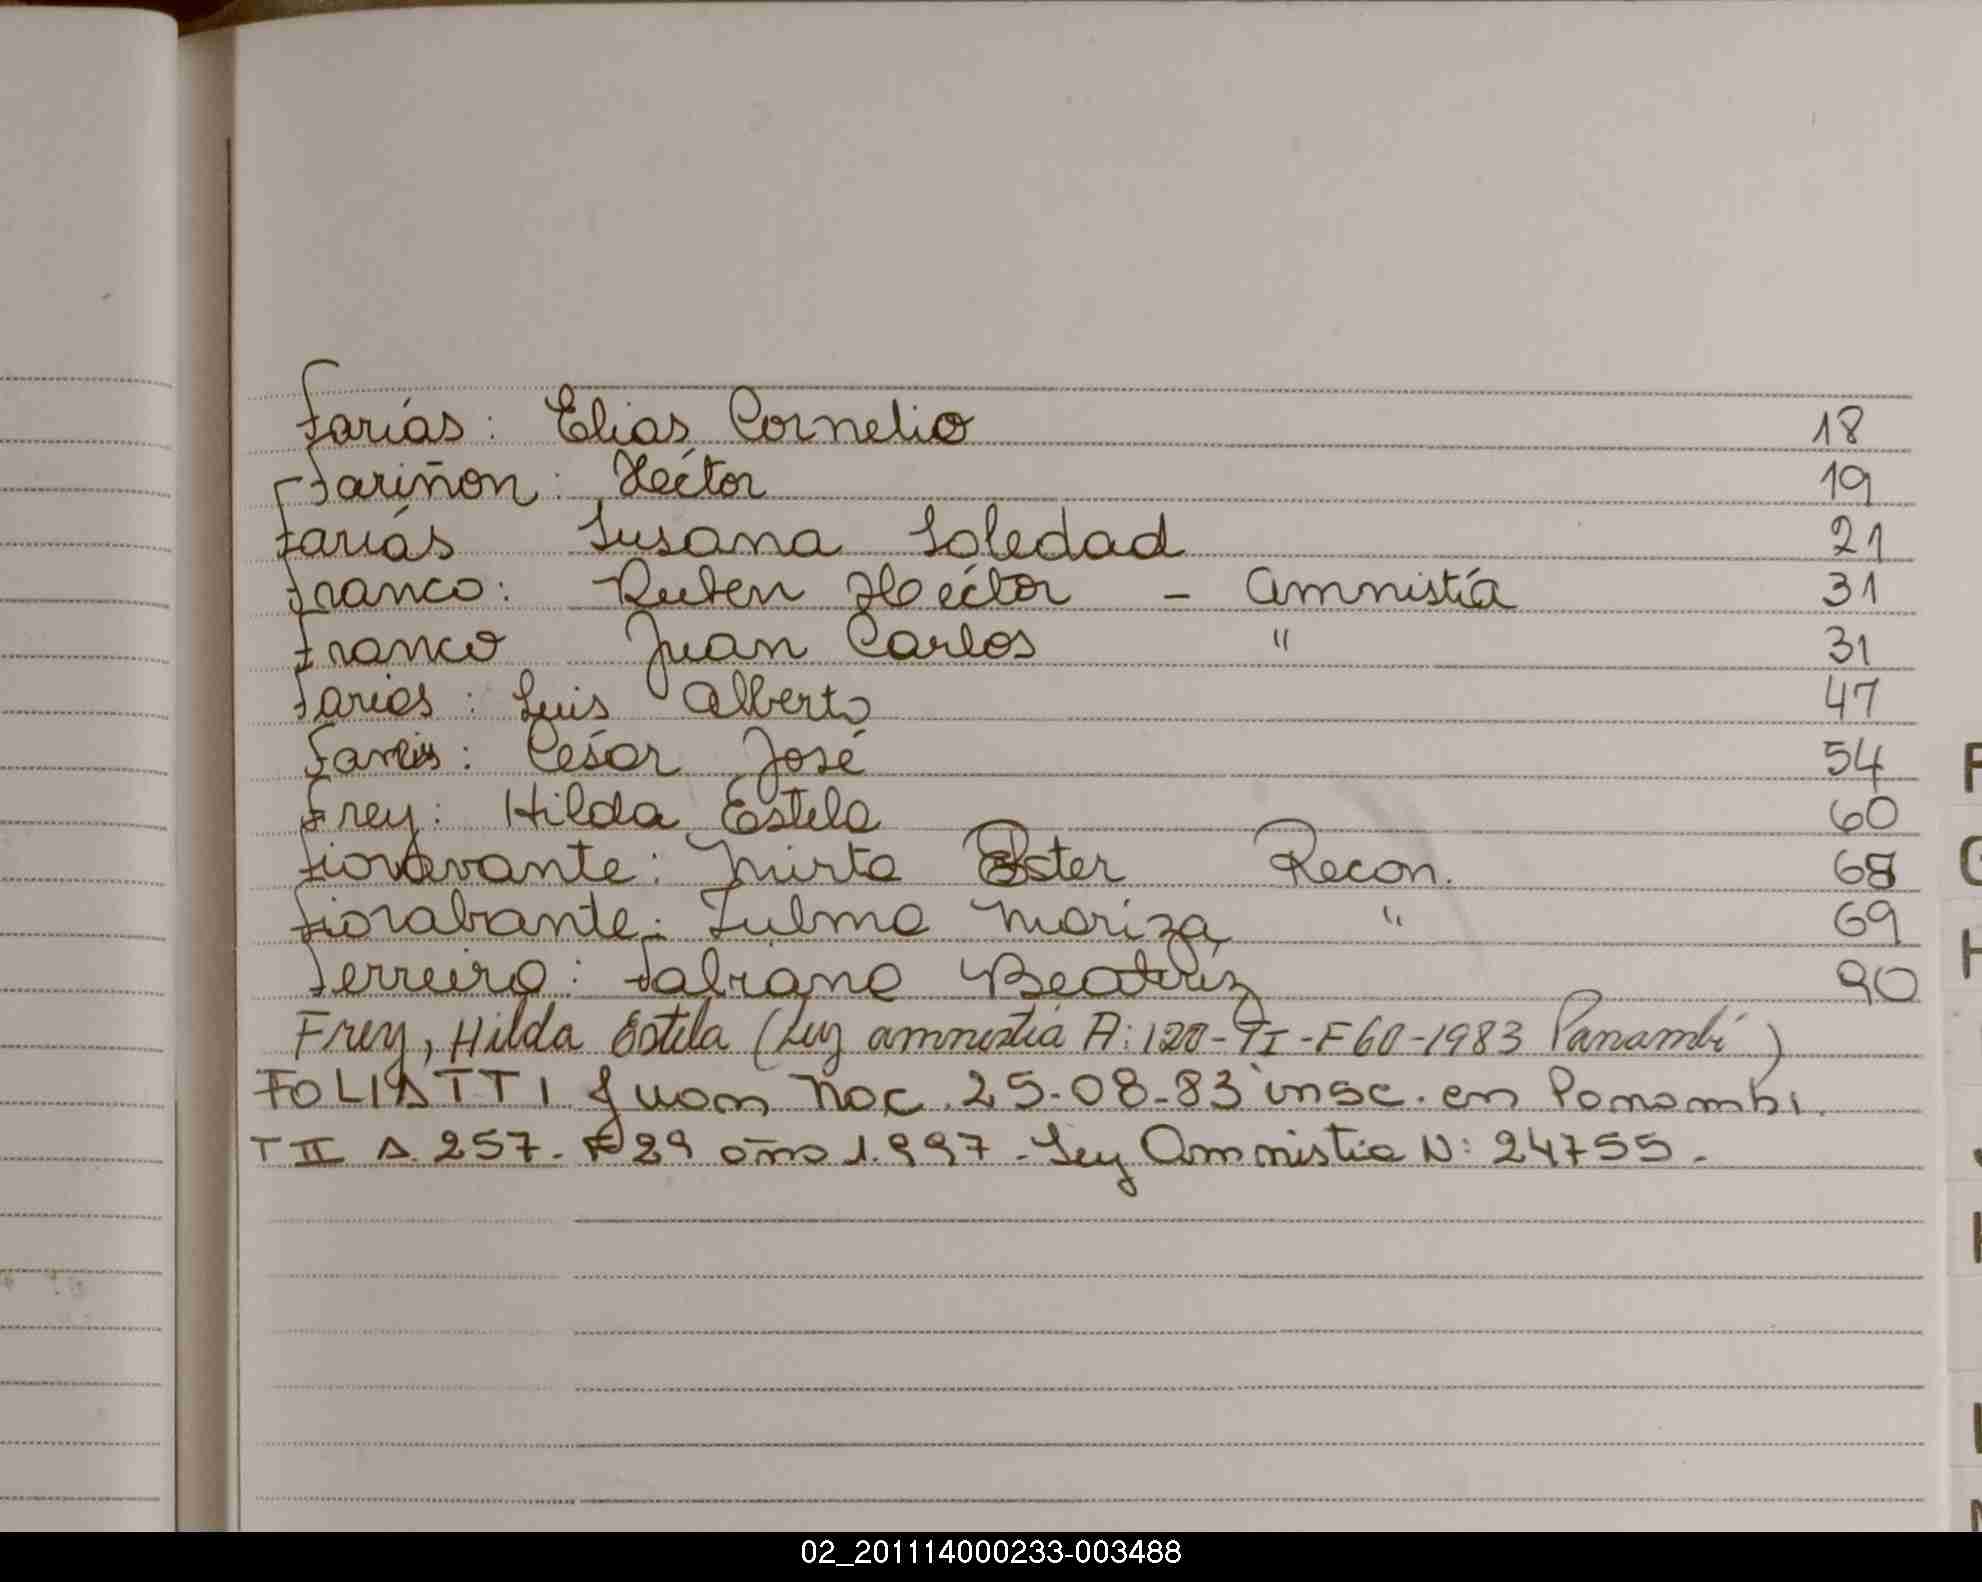 Farías: Elias Cornelio 18
Fariñon: Héctor 19
Farías Susana Soledad 21
Franco: Ruben Héctor - Amnistía 31
Franco Juan Carlos " 31
Farias: Luis Alberto 47
Farias: César José 54
Frey: Hilda Estela 60
Fioravante: Mirta Ester Recon. 68
Fiorabante: Zulma Mariza " 69
Ferreira: Fabiana Beatriz 90
Frey, Hilda Estela (Ley amnistia A: 120-TI-F60-1983 Panambí)
FOLIATTI Juan Nac. 25-08-83 insc. en Panambi.
T II A. 257. F 29 año 1.997 - Ley Amnistia N: 24755.
F
G
H
02_201114000233-003488